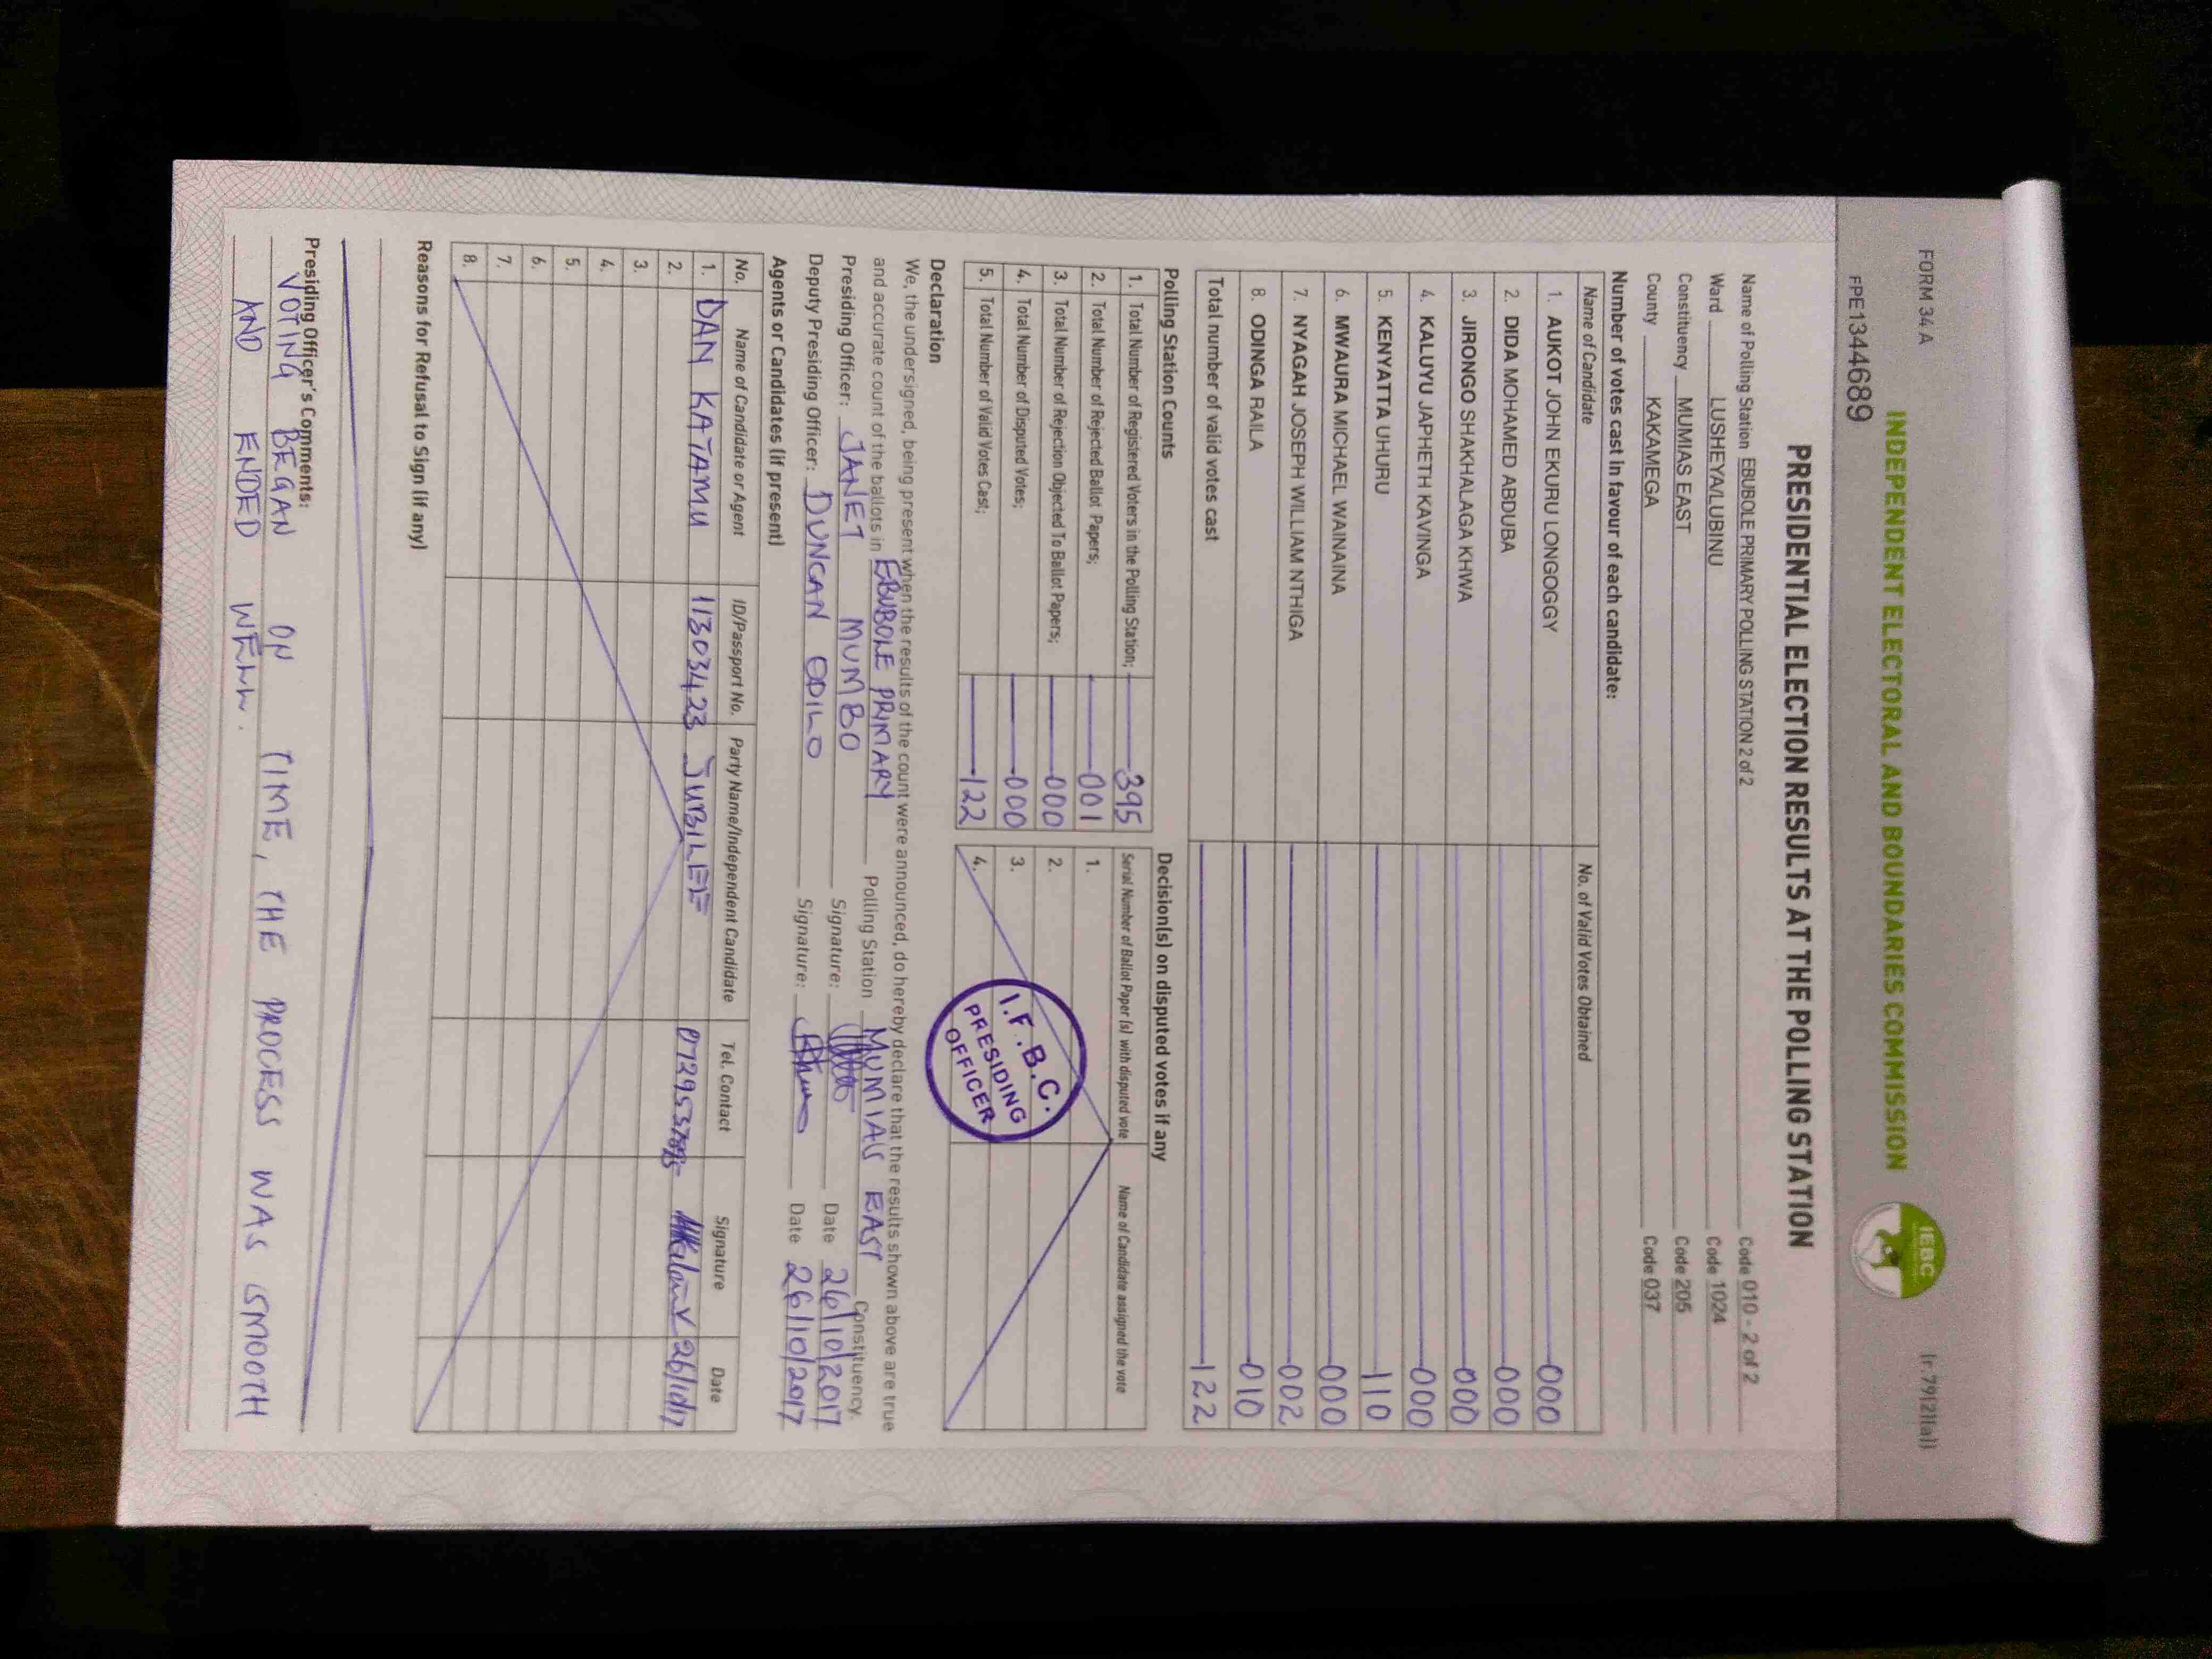 FORM 34 A (r.79(2)(a))
INDEPENDENT ELECTORAL AND BOUNDARIES COMMISSION
IEBC
FPE1344689
PRESIDENTIAL ELECTION RESULTS AT THE POLLING STATION
Name of Polling Station EBUBOLE PRIMARY POLLING STATION 2 of 2 Code 010 - 2 of 2
Ward LUSHEYA/LUBINU Code 1024
Constituency MUMIAS EAST Code 205
County KAKAMEGA Code 037
Number of votes cast in favour of each candidate:
Name of Candidate No. of Valid Votes Obtained
1. AUKOT JOHN EKURU LONGOGGY 000
2. DIDA MOHAMED ABDUBA 000
3. JIRONGO SHAKHALAGA KHWA 000
4. KALUYU JAPHETH KAVINGA 000
5. KENYATTA UHURU 110
6. MWAURA MICHAEL WAINAINA 000
7. NYAGAH JOSEPH WILLIAM NTHIGA 002
8. ODINGA RAILA 010
Total number of valid votes cast 122
Polling Station Counts Decision(s) on disputed votes if any
1. Total Number of Registered Voters in the Polling Station; 395 Serial Number of Ballot Paper (s) with disputed vote Name of Candidate assigned the vote
2. Total Number of Rejected Ballot Papers; 001 1.
3. Total Number of Rejection Objected To Ballot Papers; 000 2.
4. Total Number of Disputed Votes; 000 3.
5. Total Number of Valid Votes Cast; 122 4.
I.E.B.C.
PRESIDING
OFFICER
Declaration
We, the undersigned, being present when the results of the count were announced, do hereby declare that the results shown above are true
and accurate count of the ballots in EBUBOLE PRIMARY Polling Station MUMIAS EAST Constituency.
Presiding Officer: JANET MUMBO Signature: Date 26/10/2017
Deputy Presiding Officer: DUNCAN ODILO Signature: Date 26/10/2017
Agents or Candidates (if present)
No. Name of Candidate or Agent ID/Passport No. Party Name/Independent Candidate Tel. Contact Signature Date
1. DAN KATAMU 11303423 JUBILEE 26/10/17
2.
3.
4.
5.
6.
7.
8.
Reasons for Refusal to Sign (if any)
Presiding Officer's Comments:
VOTING BEGAN ON TIME, THE PROCESS WAS SMOOTH
AND ENDED WELL.